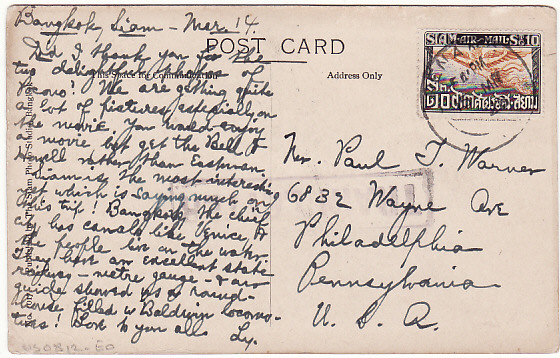 Bangkok, Siam - Mar. 14.
Did I thank you for the
two delightful photos of
We are getting quite
a lot of pictures, especially on
the movie. You would enjoy
a movie but get the Bell &
Howell rather than Eastman.
Siam is the most interesting
yet which is saying much on
this trip! Bangkok the chief
city has canals like Venice &
the people live on the water.
They have an excellent state
railway - metre gauge - & our
guide showed us a round-
house filled w Baldwin locomo-
tives! Love to you all Ly.
POST CARD
This Space for Communication
Address Only
SIAM-AIR-MAIL St. 10
Mr. Paul T. Warner
6832 Wayne Ave
Philadelphia
Pennsylvania
U. S. A.
US0812-EO